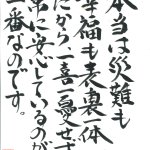 本当は災難も
幸福も表裏一体
だから、一喜一憂せず
常に安心しているのが
一番なのです。